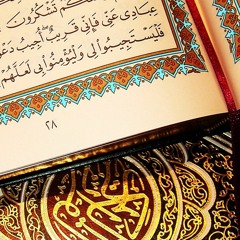 تَشْكُرُونَ
عِبَادِى عَنِّى فَإِنِّى قَرِيبٌ أُجِيبُ
فَلْيَسْتَجِيبُوا۟ لِى وَلْيُؤْمِنُوا۟ بِى لَعَلَّهُمْ
٢٨